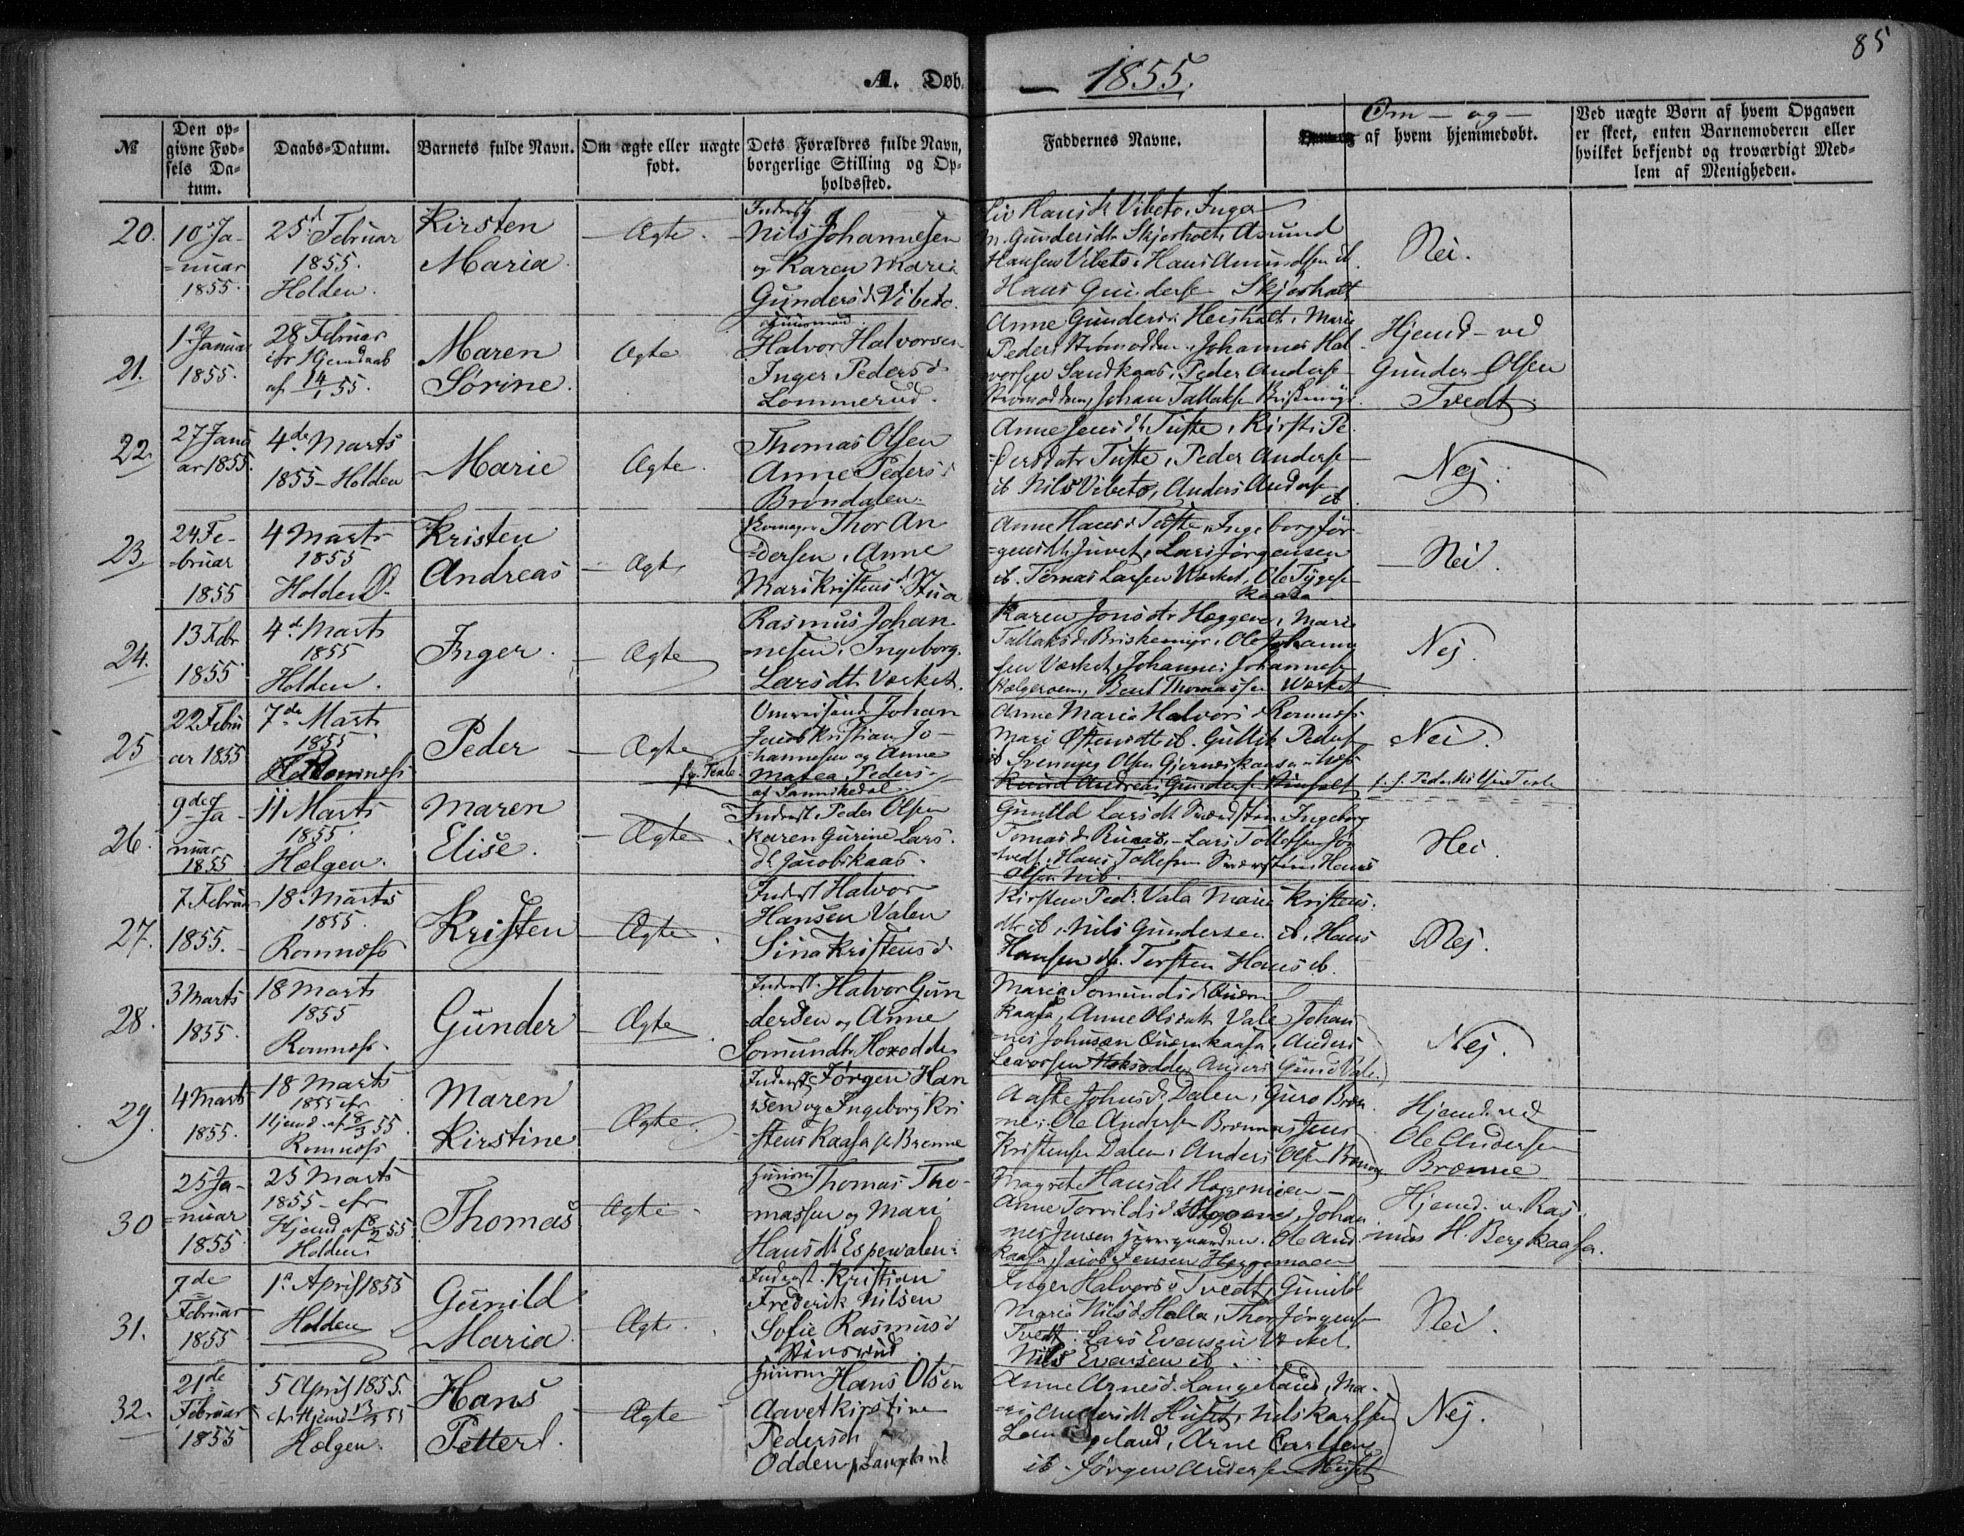 85
A. Døb.
— 1855.
№
Den opgivne Fødsels Datum.
Daabs-Datum.
Barnets fulde Navn.
Om ægte eller uægte født.
Dets Forældres fulde Navn, borgerlige Stilling og Opholdssted.
Faddernes Navne.
Om — og — af hvem hjemmedøbt.
Ved uægte Børn af hvem Opgaven er skeet, enten Barnemoderen eller hvilket bekjendt og troværdigt Medlem af Menigheden.
20.
10 Ja-
=nuar
1855.
25d Februar
1855.
Holden.
Kirsten
Maria
Ægte.
Inderst
Nils Johannesen
og Karen Marie
Gundersd Vibeto.
Hansd. Vibeto, Inger
Gundersdtr Skjerholt, Amund
Hansen Vibeto, Hans Amundsen ib.
Hans Gundersen Skjerholt
Nei.
21.
1 Januar
1855.
28 Februar
efr Hjemdaab
af 14/1 55.
Maren
Sørine.
Ægte
Huusmand
Halvor Halvorsen
Inger Pedersd
Lommerud.
Anne Gundersd. Heisholt, Mari
Peders Strømodden, Johannes Hal-
vorsen Sandkaas, Peder Anders-
Strømodden, Johan Tallaksen
Hjemd — ved
Gunder Olsen
Tvedt.
22.
27 Janu
ar 1855.
4de Marts
1855 — Holden
Marie
Ægte.
Thomas Olsen
Anne Pedersd
Brøndalen.
Anne Jensdtr Tufte, Kirsti Pe-
=dersdatr Tufte, Peder Anderse-
ib Nils Vibeto, Anders Anders
ib
Nej.
23.
24 Fe-
=bruar
1855
4 Marts
1855
Holden
Kristen
Andreas
Ægte
Thor An
=dersen, Anne
Mari Kristensd. Stua
Anne Hansd Tufte, Ingeborg Jør-
=gensdtr Juvet, Lars Jørgensen
ib. Tomas Larsen Værket, Ole Tygese-
Kaasa
Nei.
24.
13 Febr
1855
4d Marts
1855
Holden.
Inger.
Ægte
Rasmus Johan
=nesen, Ingeborg
Larsdtr Værket.
Karen Jonsdtr Heggen, Mari
Tallaksd Briskemyr, Ole Johanne
sen Værket, Johannes Johannesen
Helgeroen, Bent Thomassen Værket
Nej.
25
22 Febru
ar 1855
7de Marts
1855
Romnæss
Peder
Ægte
Johan
Jacob Kristian Jo-
hannesen og Anne
Marea Peders-
af Sannikedal.
Anne Maria Halvorsd Romnæss
Mari Østensdtr ib. Gullik Peders-
ib Svennung Olsen Gjerneskaasa
Knud Andreas Gunderse
Nei.
26.
9de Ja-
nuar
1855
11 Marts
1855.
Hælgen.
Maren
Elise.
Ægte
Inderst Peder Olsen
Karen Gurine Lars-
dtr Jacobskaas.
Gunild Larsdtr
Ingeborg
Tomasd Lars Tollefsen
Hans Tollefsen Hans
Olsen ib.
Nei
27.
7 Februar
1855.
18 Marts
1855.
Romnæss
Kristen
Ægte
Inderst Halvor
Hansen Valen
Sina Kristensd
Kirsten Pedr Vala Marie Kristens-
dtr ib, Nils Gundersen ib, Hans
Hansen ib. Torsten Hans ib.
Nej.
28.
3 Marts
1855.
18 Marts
1855
Romnæss.
Gunder
Ægte
Inderst. Halvor Gun
=dersen og Anne
Somundtr
Maria Somundsd
kaasa, Anne Olsdatt Vale, Johan-
=nes Johnsen Quernkaasa, Anders
Nej.
29.
4 Marts
1855.
18 Marts
1855 efr
Hjemd. af 8/3 55.
Romnæss
Maren
Kirstine
Ægte.
Inderst Jørgen Han
sen og Ingeborg Kri
stens Kaasa Brenne
Aaste Johnsd. Dalen, Guro Bren-
ne, Ole Andersen Brenne, Jens
Kristensen Dalen, Anders Olsen
Hjemd. ved
Ole Andersen
Brenne
30
25 Ja-
=nuar
1855
25 Marts
1855 — efr
Hjemd af 8/2 55
Holden.
Thomas
Ægte
Thomas Tho-
massen og Mari
Hansdtr Espevalen.
Magrete Hansdtr Heggemoen —
Anne Torvildsd Johan
nes Jensen Ole And
kaasa, Jacob Jensen Heggemoen
Hjemd. v. Ras-
mus H. Bergkaasa.
31.
7de
Februar
1855
1ste April 1855
Holden
Gunild
Maria.
Ægte.
Inderst. Kristian
Frederik Nilsen
Sofie Rasmusd
Inger Halvorsd Tvedt, Gunild
Maria Nilsd Holla, Thor Jørgense-
Tvedt, Lars Evensen Værket
Nils Evensen ib.
Nei.
32.
21de
Februar
1855
5 April 1855.
Hjemd
Hælgen.
Hans
Petter.
Ægte
Hans Olsen
Aavet Kirstine
Pedersd
Odden
Anne Arnesd. Langeland, Ma-
=ri Andersdtr Nils Karlsen
Langeland, Arne Carlsen
ib. Jørgen Andersen
Nej.